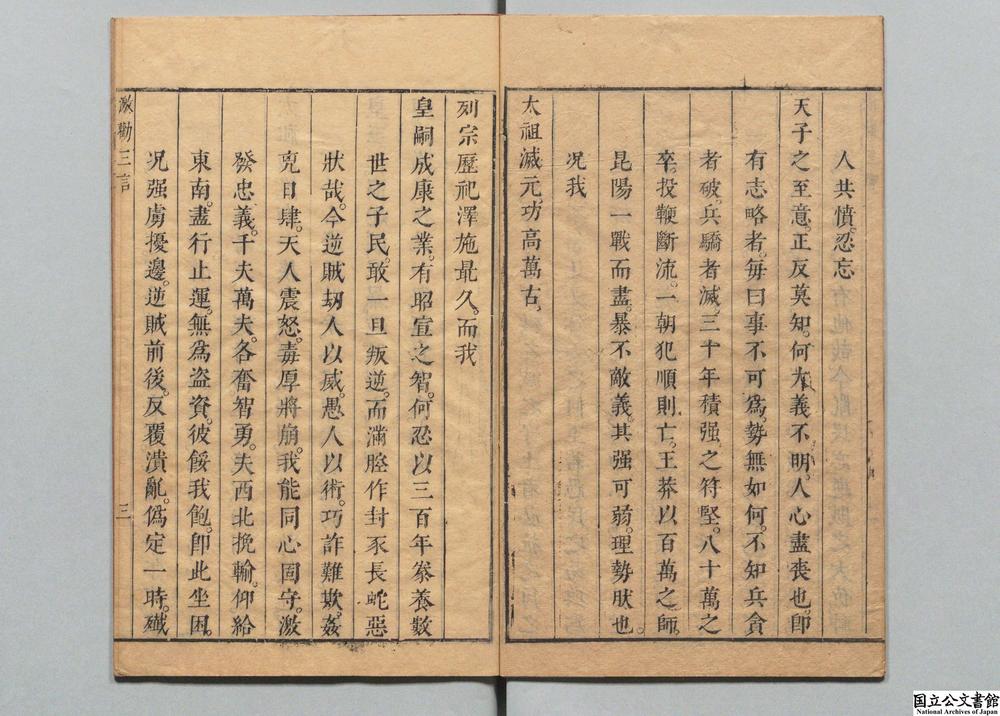 人共憤。忍忘
天子之至意。正反莫知。何大義不明。人心盡喪也。卽
有志略者。每曰事不可爲。勢無如何。不知兵貪
者破。兵驕者滅。三十年積强之符堅。八十萬之
卒。投鞭斷流。一朝犯順則亡。王莽以百萬之師。
昆陽一戰而盡。暴不敵義。其强可弱。理勢狀也。
况我
太祖滅元。功高萬古。
列宗歷祀澤施最久。而我
皇嗣成康之業。有昭宣之智。何忍以三百年豢養數
世之子民。敢一旦叛逆。而滿腔作封豕長蛇惡
狀哉。今逆賊刼人以威。愚人以術。巧詐難欺。姦
兇日肆。天人震怒。毒厚將崩。我能同心固守。激
發忠義。千夫萬夫。各奮智勇。夫西北挽輸。仰給
東南。盡行止運。無爲盗資。彼餒我飽。卽此坐困。
况强虜擾邊。逆賊前後。反覆潰亂。僞定一時。殲
激勸三言
三
国立公文書館
National Archives of Japan